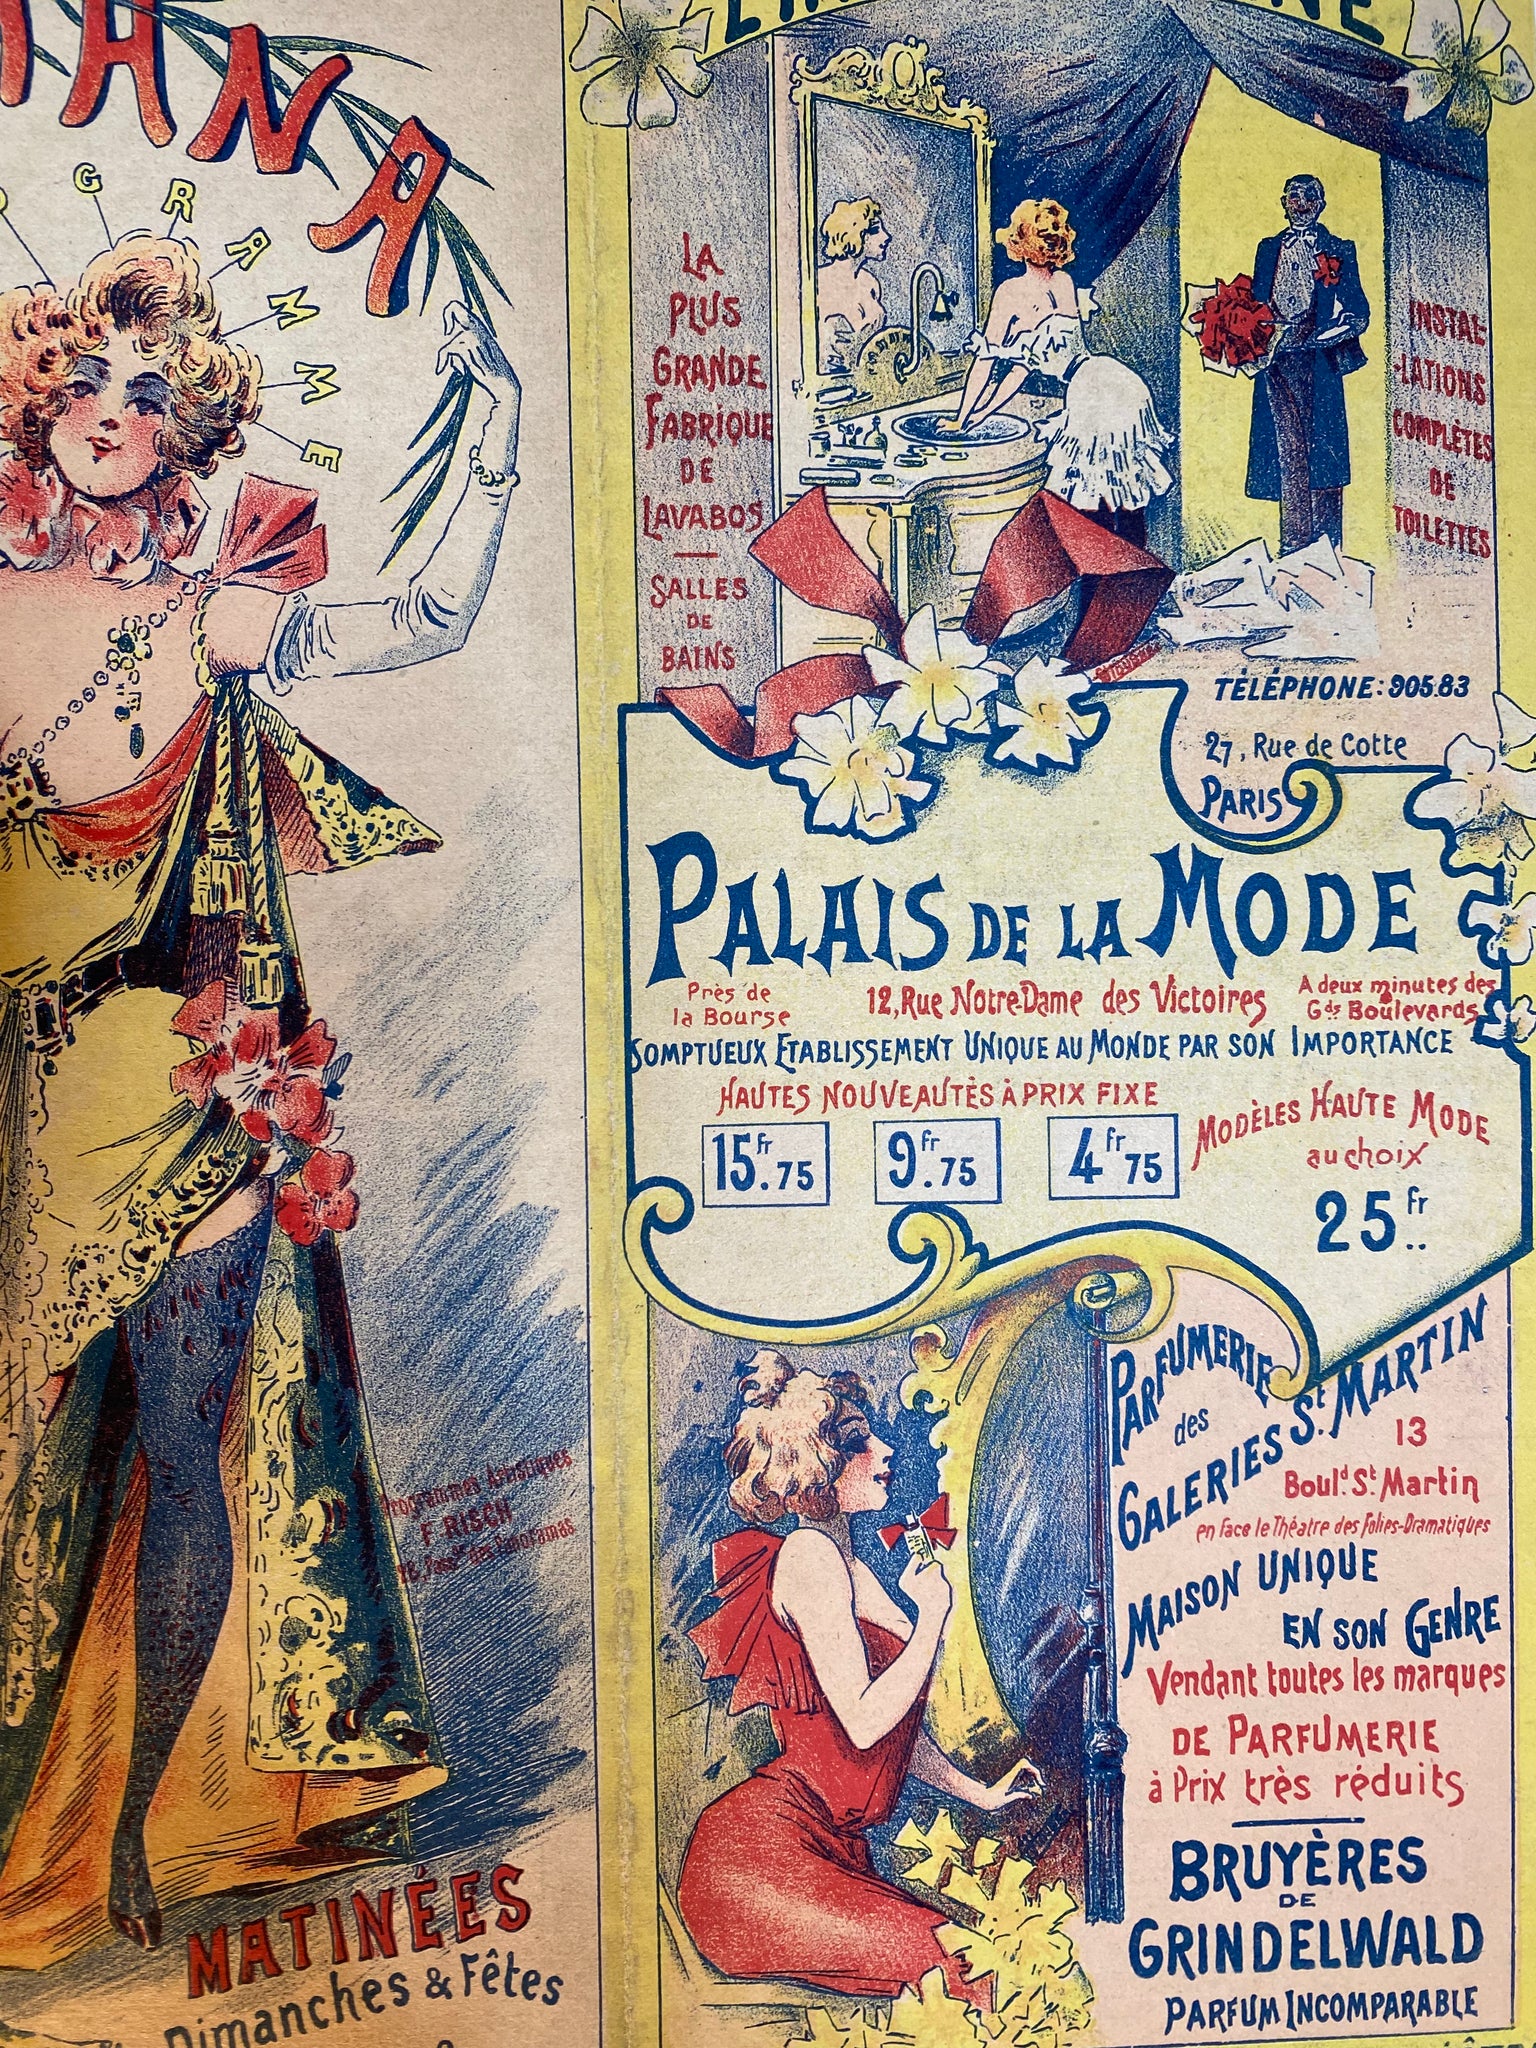 ANA
GRAMME
Programmes Artistiques
F RISCH
MATINÉES
Dimanches & Fêtes
LA
PLUS
GRANDE
FABRIQUE
DE
LAVABOS
SALLES
DE
BAINS
INSTAL-
-LATIONS
COMPLÈTES
DE
TOILETTES
TÉLÉPHONE: 905.83
27, Rue de Cotte
PARIS
PALAIS DE LA MODE
Près de
la Bourse
12, Rue Notre-Dame des Victoires
A deux minutes des
Gds Boulevards
SOMPTUEUX ETABLISSEMENT UNIQUE AU MONDE PAR SON IMPORTANCE
HAUTES NOUVEAUTÉS À PRIX FIXE
15fr.75
9fr.75
4fr75
MODÈLES HAUTE MODE
au choix
25fr..
PARFUMERIE
des
GALERIES St. MARTIN
13
Bould. St. Martin
en face le Théatre des Folies-Dramatiques
MAISON UNIQUE
EN SON GENRE
Vendant toutes les marques
DE PARFUMERIE
à Prix très réduits
BRUYÈRES
DE
GRINDELWALD
PARFUM INCOMPARABLE